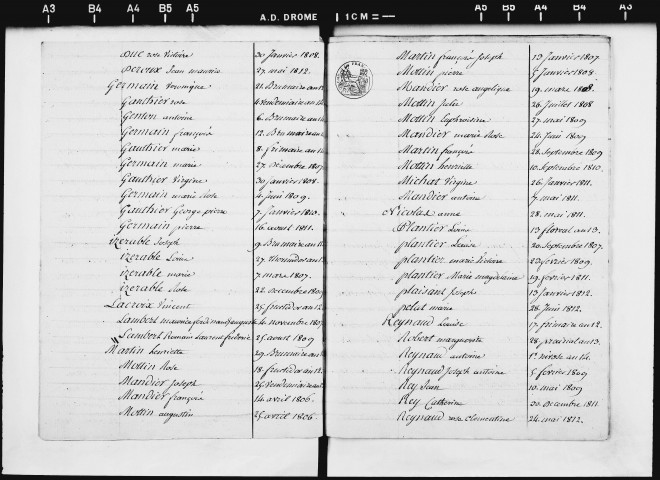 A3 B4 A4 B5 A5 A.D. DROME 1 CM A5 B5 A4 B4 A3
Duc rose Victoire 20 Janvier 1808.
Deroux Jean maurice 27. mai 1812.
Germain veronique 21. Brumaire an
Gauthier rose vendemiaire an
Genton antoine 6. Brumaire an
Germain françois 12. Brumaire an
Gauthier marie 8. frimaire an
Germain marie 27. décembre 1807
Gauthier Virginie 30 Janvier 1808.
Germain marie Rose 4. Juin 1809.
Gauthier George pierre 7. Janvier 1810.
Germain pierre 16. aout 1811.
izerable Joseph 9. Brumaire an
izerable Louise 27. an 12.
izerable marie 7. mars 1807.
izerable Rose 22. décembre 1809
Lacroix Vincent 25. fructidor an 12
Lambert maurice 4. novembre 1807
Lambert Romain Laurent frederic 25. aout 1809
Martin henriette 29. Brumaire an
Mottin Rose 18. fructidor an 12.
Mandier Joseph 25. vendemiaire
Mandier françois 14. avril 1806.
Mottin augustin 25. avril 1806.
Martin françois Joseph 13 Janvier 1807
Mottin pierre 5 Janvier 1808.
Mandier rose angelique 19. mars 1808.
Mottin Julie 26. Juillet 1808
Mottin Euphroisine 27. mai 1809
Mandier marie Rose 24. Juin 1809
Martin françois 28. Septembre 1809
Mottin henriette 10. Septembre 1810.
Michat Virginie 26. Janvier 1811.
Mandier antoine 7. mai 1811.
Nicolas anne 28. mai 1811.
Plantier Louise 13. floreal an 13.
plantier Louise 20. Septembre 1807.
plantier marie Victoire 23 fevrier 1809.
plantier Marie magdelaine 19. fevrier 1811.
plaisant Joseph 13 Janvier 1812.
petit marie 28. Juin 1812.
Reynaud Louise 17 frimaire an 12.
Robert marguerite 28. prairial an 13.
Reynaud antoine 1er. nivose an 14.
Reynaud Joseph antoine 5 fevrier 1809
Rey Jean 10. mai 1809
Rey Catherine 30. Decembre 1811
Reynaud rose Clementine 24. mai 1812.